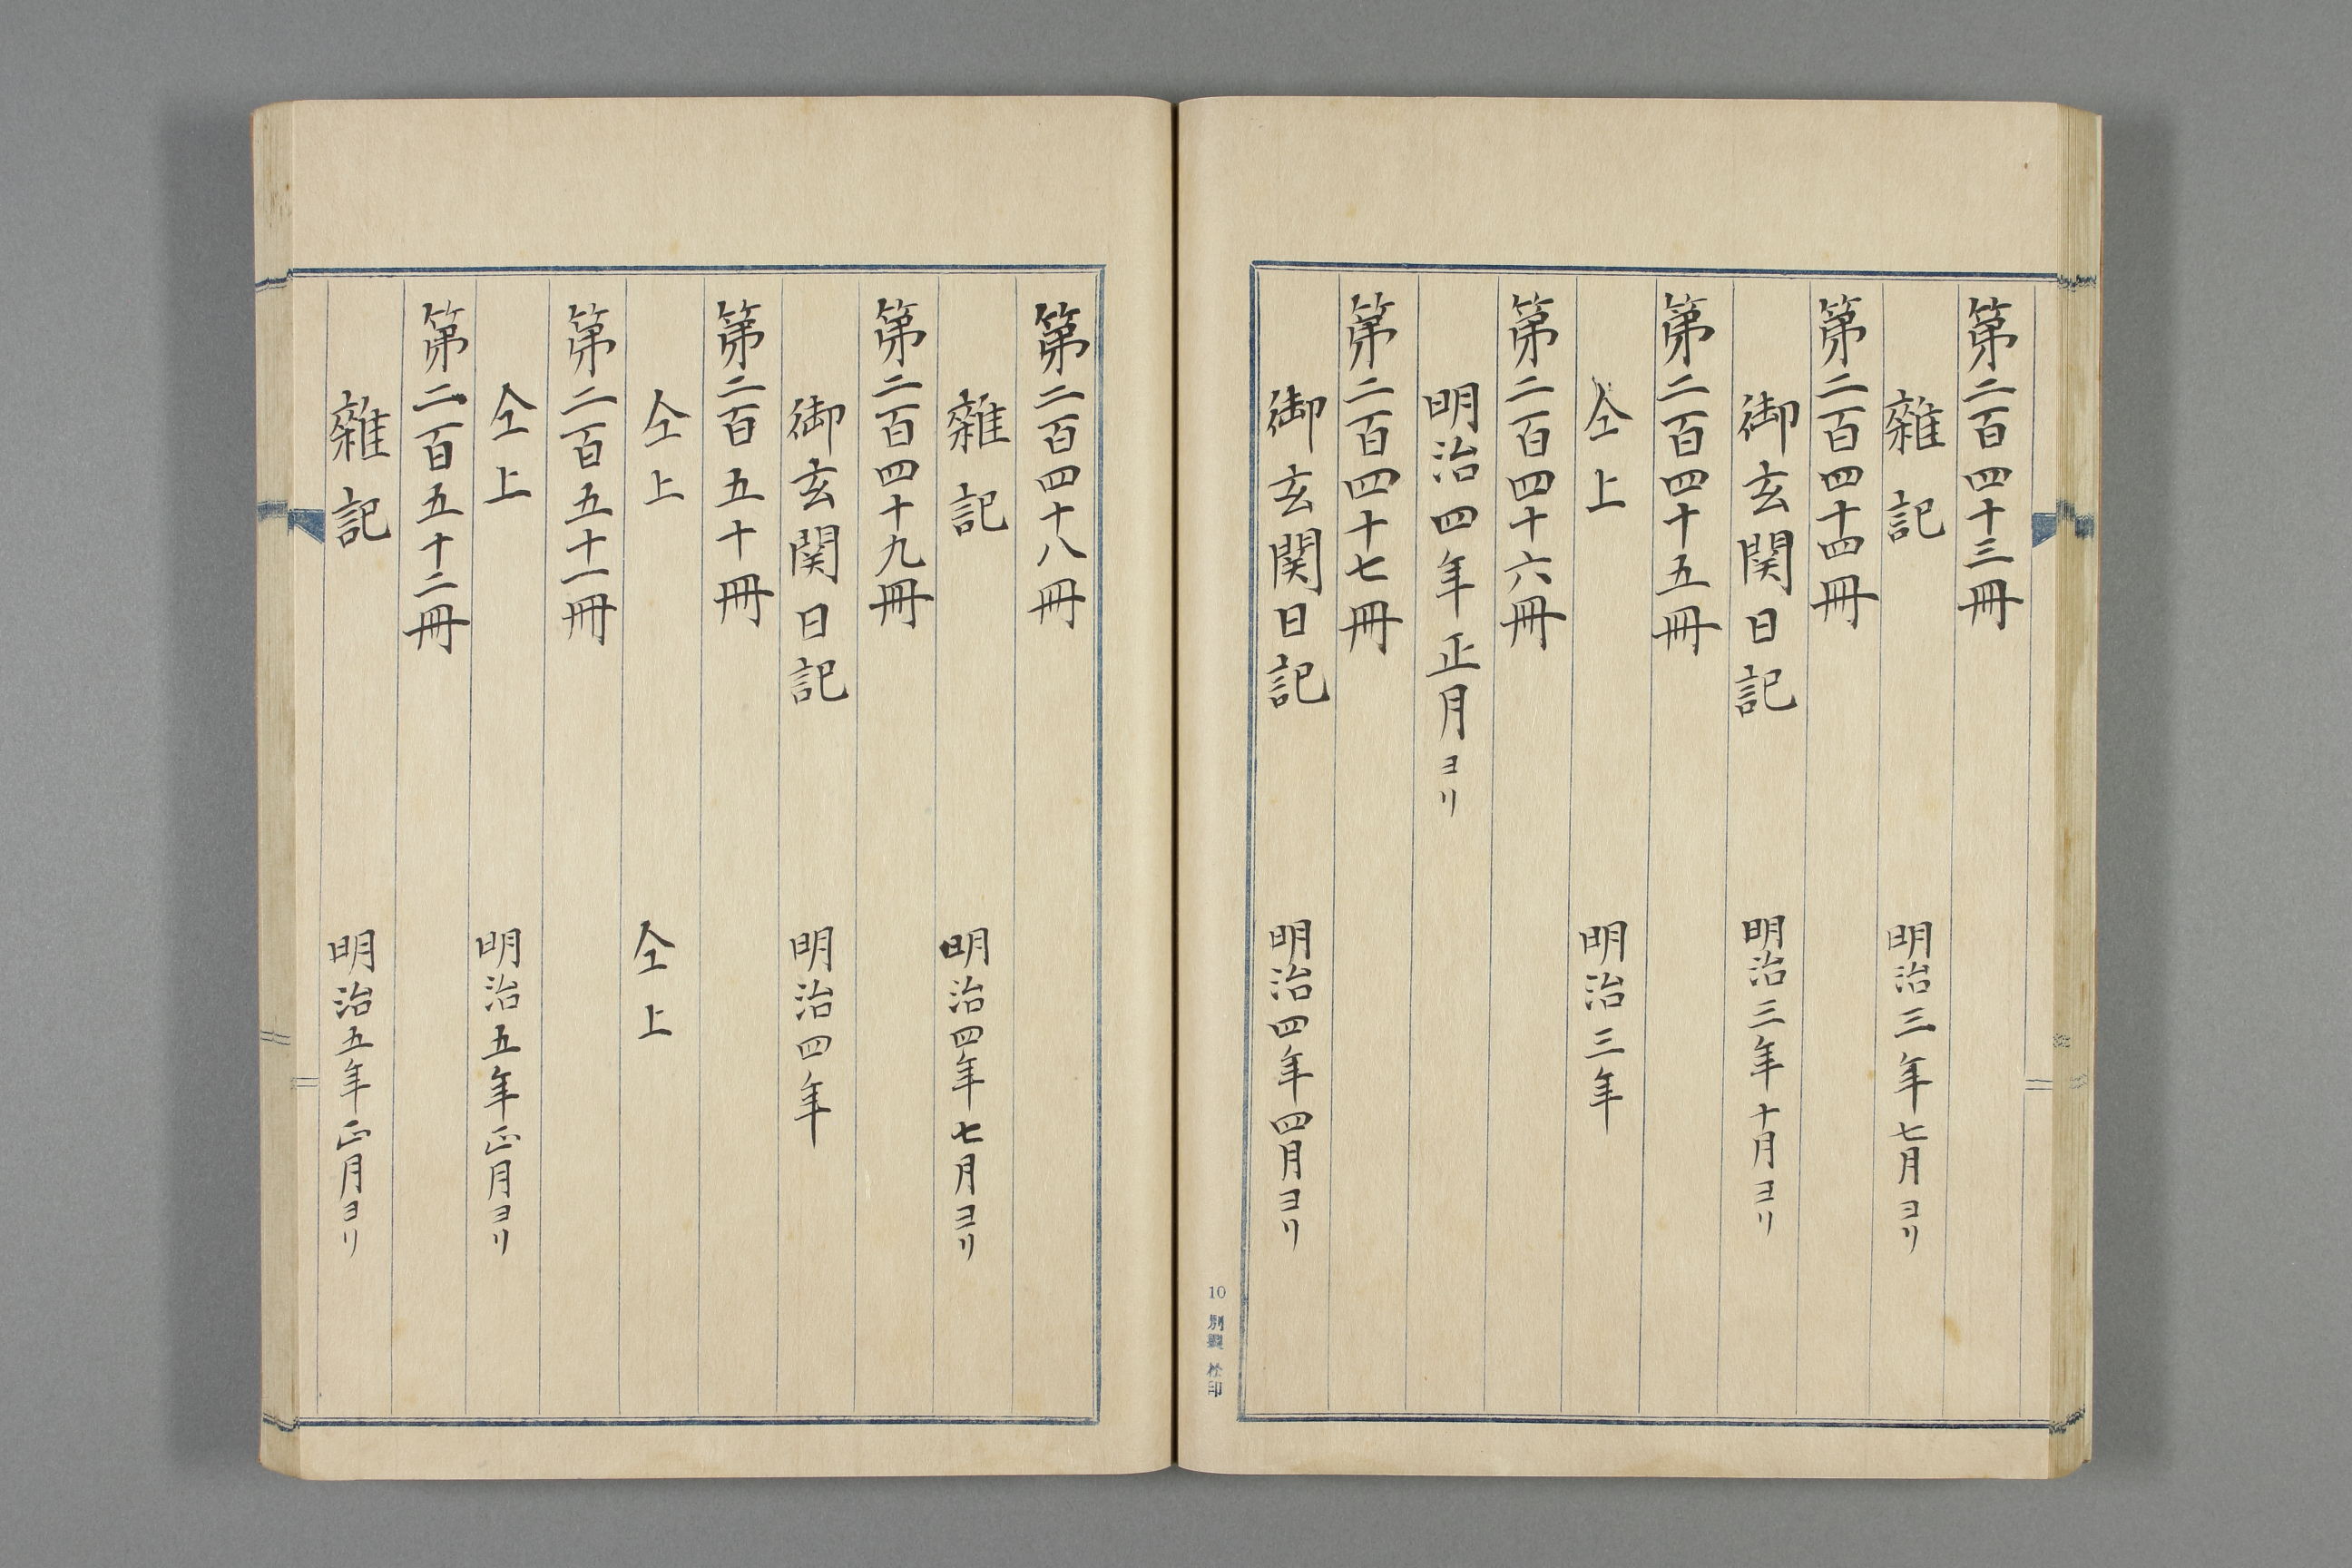 第二百四十三冊
雜記　明治三年七月ヨリ
第二百四十四冊
御玄関日記　明治三年十月ヨリ
第二百四十五冊
仝上　明治三年
第二百四十六冊
明治四年正月ヨリ
第二百四十七冊
御玄関日記　明治四年四月ヨリ
10 別製 松印
第二百四十八冊
雜記　明治四年七月ヨリ
第二百四十九冊
御玄関日記　明治四年
第二百五十冊
仝上　仝上
第二百五十一冊
仝上　明治五年正月ヨリ
第二百五十二冊
雜記　明治五年正月ヨリ